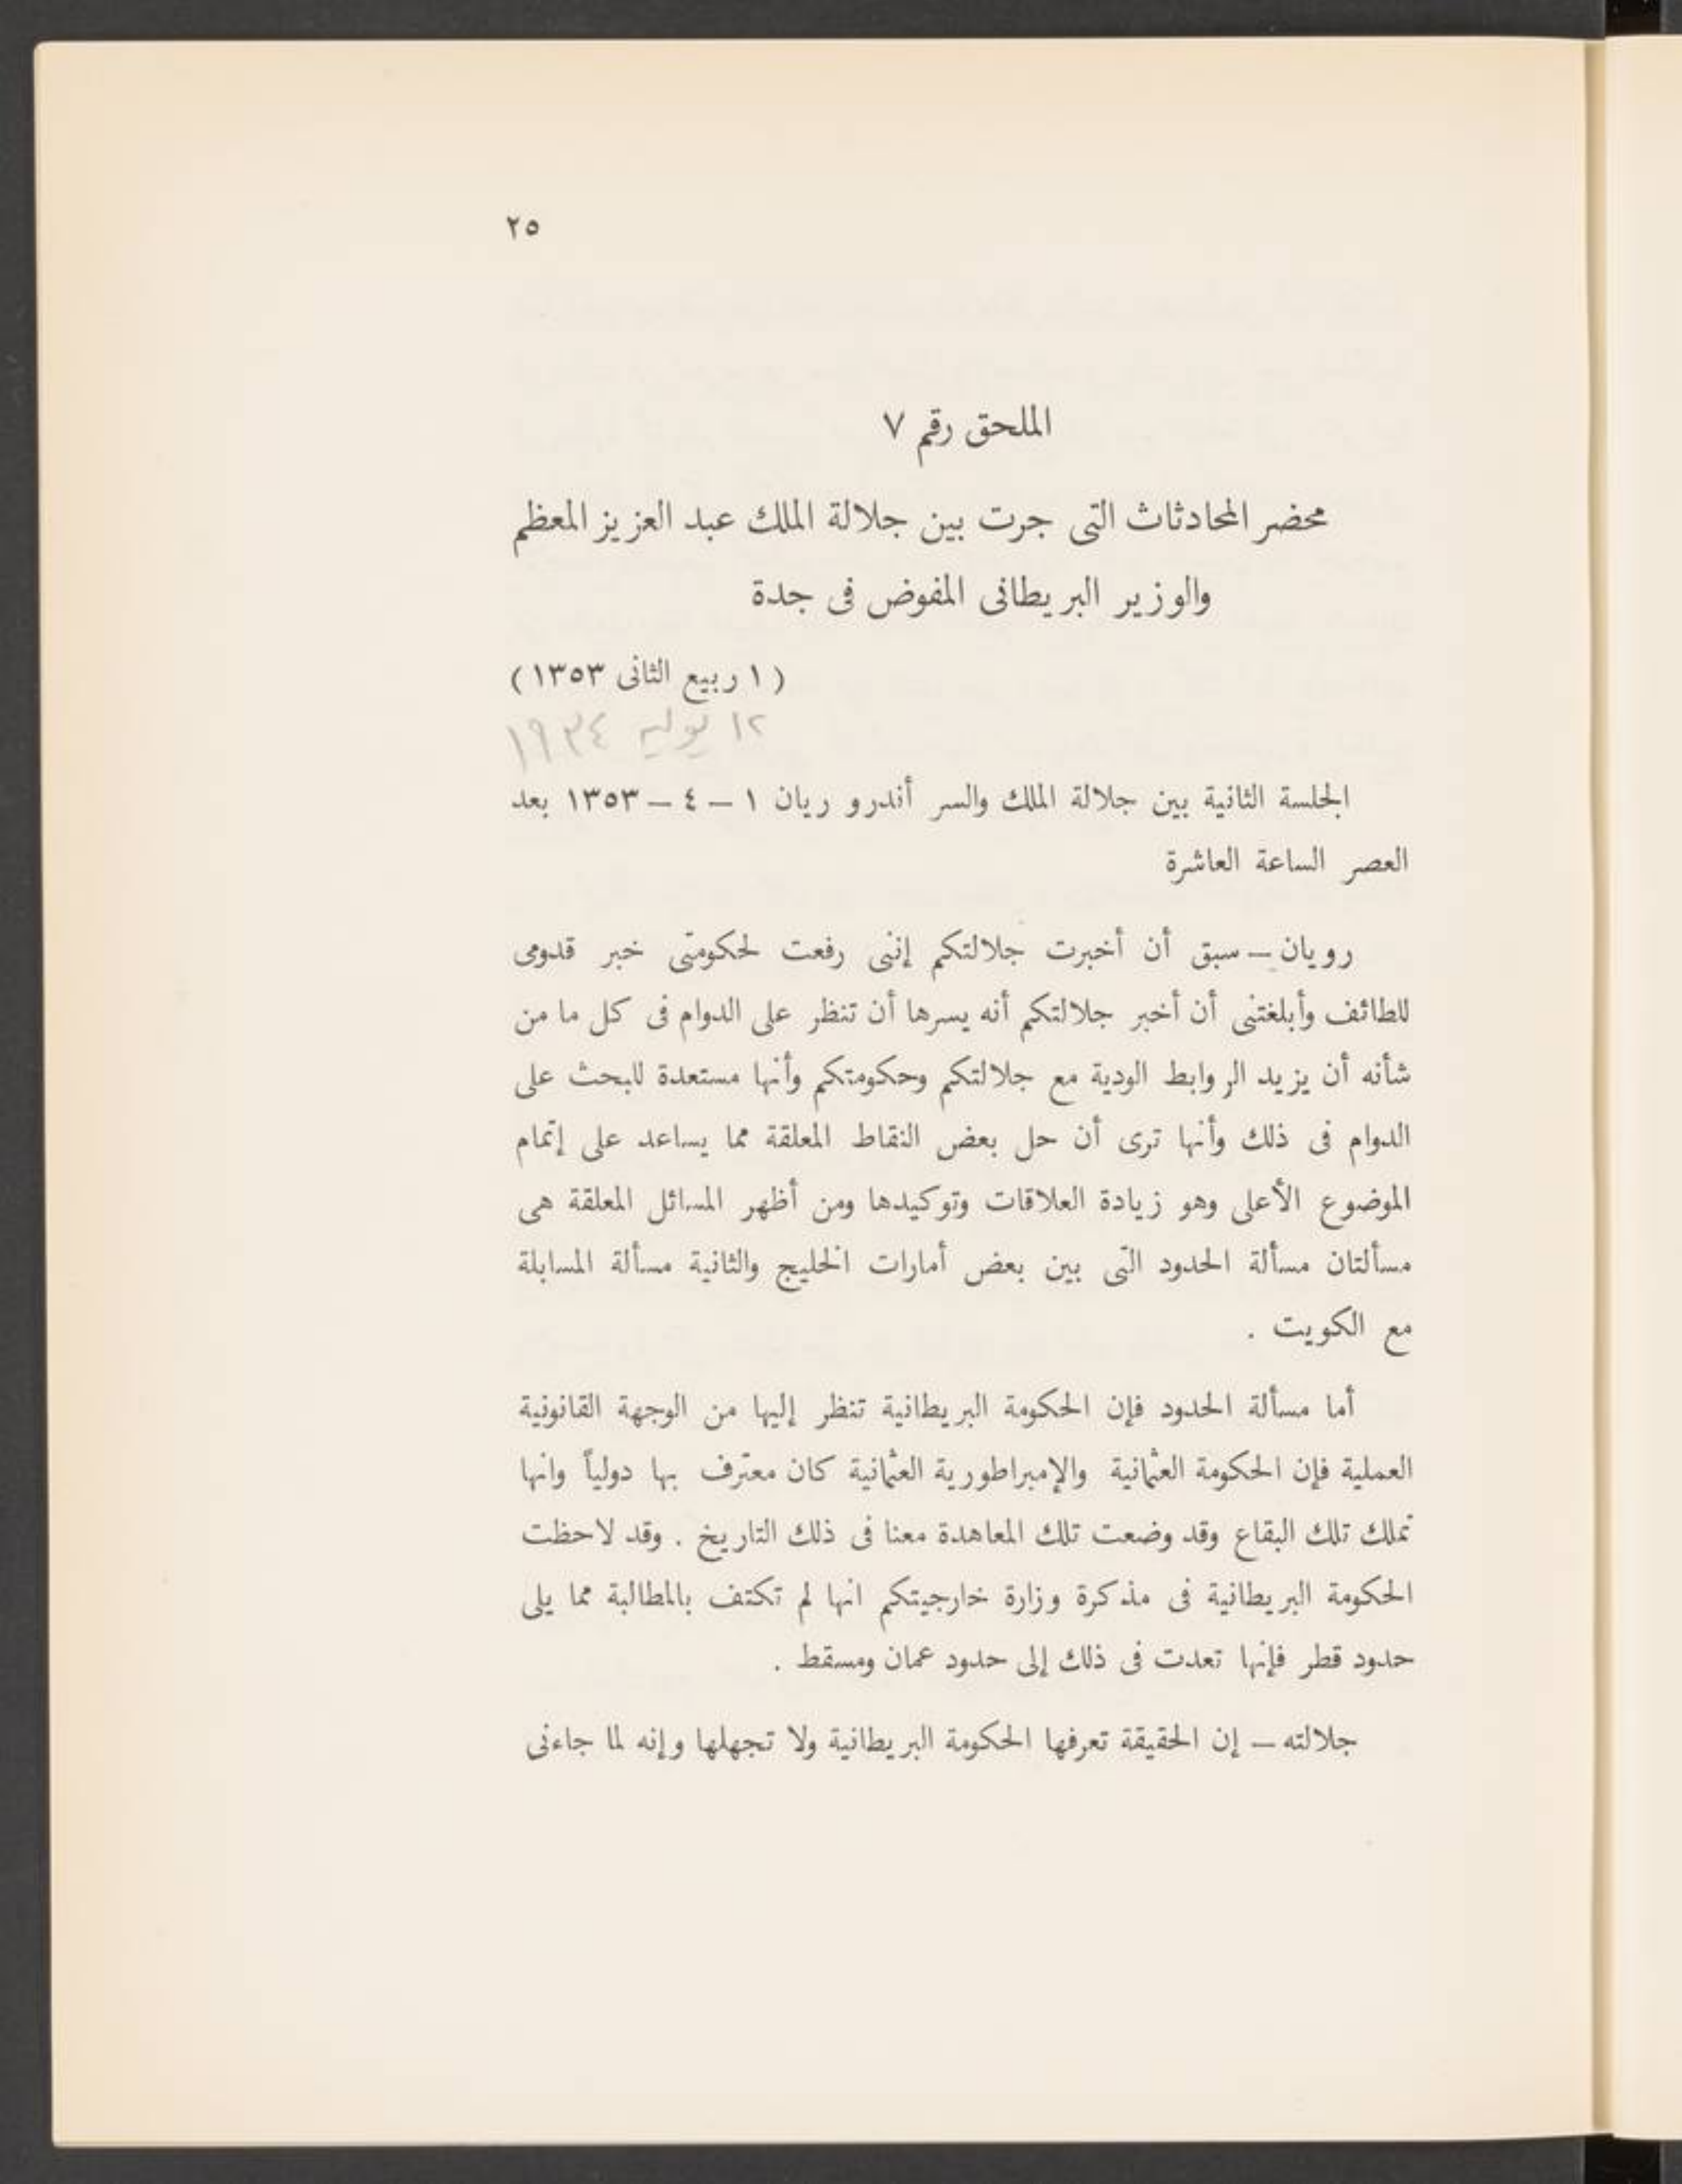 ٢٥
الملحق رقم ٧
محضر المحادثاث التى جرت بين جلالة الملك عبد العزيز المعظم
والوزير البريطانى المفوض فى جدة
( ١ ربيع الثانى ١٣٥٣ )
١٢ يوليه ١٩٣٤
الجلسة الثانية بين جلالة الملك والسر أندرو ريان ١ – ٤ – ١٣٥٣ بعد
العصر الساعة العاشرة
رويان – سبق أن أخبرت جلالتكم إننى رفعت لحكومتى خبر قدومى
للطائف وأبلغتنى أن أخبر جلالتكم أنه يسرها أن تنظر على الدوام فى كل ما من
شأنه أن يزيد الروابط الودية مع جلالتكم وحكومتكم وأنها مستعدة للبحث على
الدوام فى ذلك وأنها ترى أن حل بعض النقاط المعلقة مما يساعد على إتمام
الموضوع الأعلى وهو زيادة العلاقات وتوكيدها ومن أظهر المسائل المعلقة هى
مسألتان مسألة الحدود التى بين بعض أمارات الخليج والثانية مسألة المسابلة
مع الكويت .
أما مسألة الحدود فإن الحكومة البريطانية تنظر إليها من الوجهة القانونية
العملية فإن الحكومة العثمانية والإمبراطورية العثمانية كان معترف بها دولياً وانها
تملك تلك البقاع وقد وضعت تلك المعاهدة معنا فى ذلك التاريخ . وقد لاحظت
الحكومة البريطانية فى مذكرة وزارة خارجيتكم انها لم تكتف بالمطالبة مما يلى
حدود قطر فإنها تعدت فى ذلك إلى حدود عمان ومسقط .
جلالته – إن الحقيقة تعرفها الحكومة البريطانية ولا تجهلها وإنه لما جاءنى